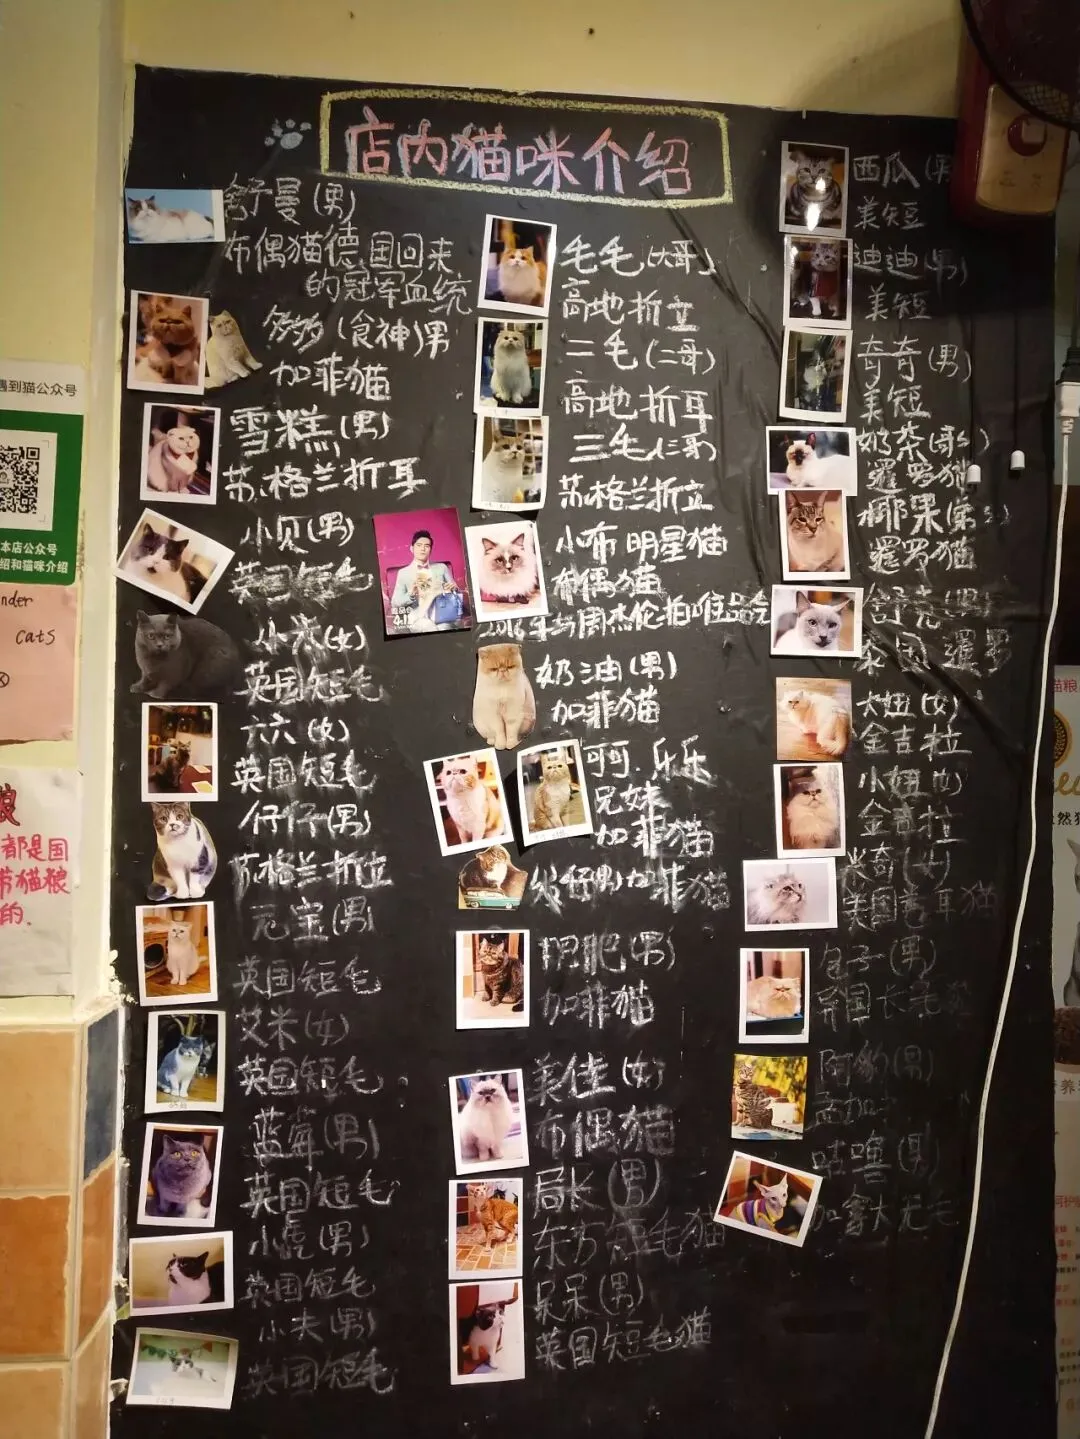 店内猫咪介绍
舒曼(男)
布偶猫德国回来
的冠军血统
(食神)男
加菲猫
雪糕(男)
苏格兰折耳
小贝(男)
英国短毛
小米(女)
英国短毛
六六(女)
英国短毛
仔仔(男)
苏格兰折立
元宝(男)
英国短毛
艾米(女)
英国短毛
蓝莓(男)
英国短毛
小虎(男)
英国短毛
小夫(男)
英国短毛
毛毛(大哥)
高地折立
二毛(二哥)
高地折耳
三毛(三哥)
苏格兰折立
小布 明星猫
布偶猫
2016年与周杰伦拍唯品会
奶油(男)
加菲猫
可可.乐乐
兄妹
加菲猫
仔(男)加菲猫
肥肥(男)
加菲猫
美佳(女)
布偶猫
局长(男)
东方短毛猫
呆呆(男)
英国短毛猫
西瓜(男
美短
迪迪(男)
美短
奇奇(男)
美短
奶茶
暹罗猫
椰果
暹罗猫
舒克(男)
泰国暹罗
大妞(女)
金吉拉
小妞(女)
金吉拉
奇(女)
美国卷耳猫
包子(男)
异国长毛
阿豹(男)
孟加
咕噜(男)
加拿大无毛
遇到猫公众号
本店公众号
绍和猫咪介绍
nder
cats
粮
都是国
带猫粮
的.
猫粮